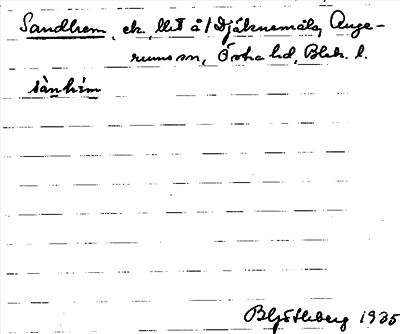 Sandhem, ek. llt å 1 Djäknemåla, Ange-
rums sn, Östra hd, Blek. l.
sànhèm
B Götlberg 1935